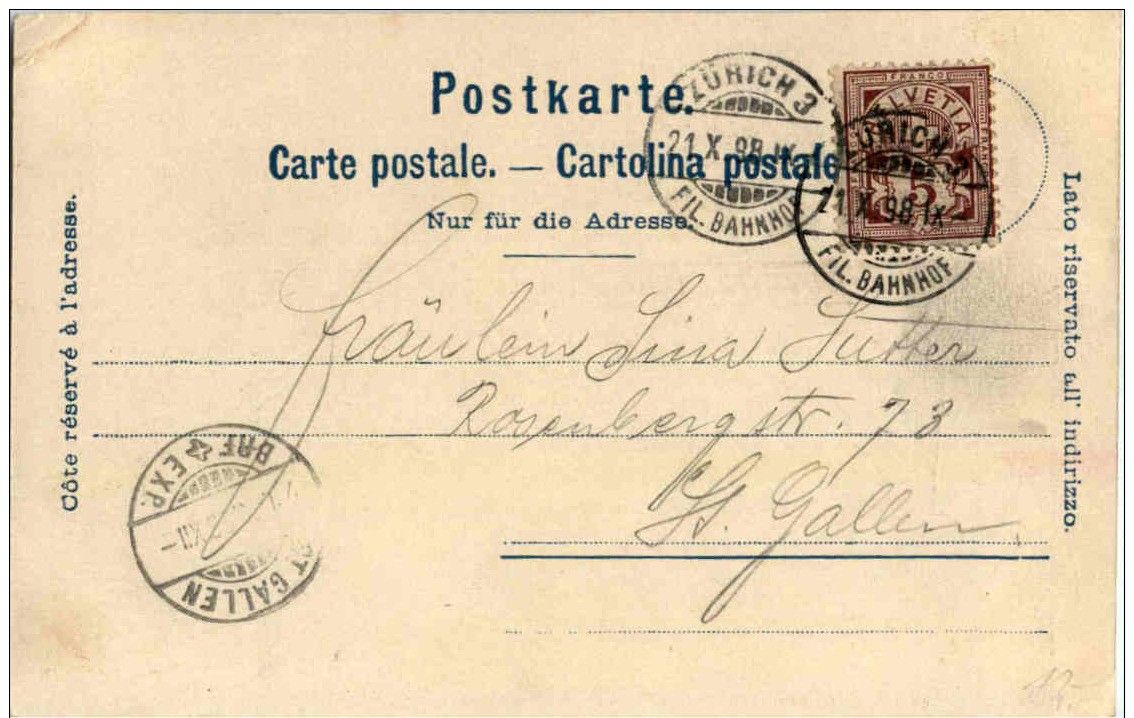 Postkarte.
Carte postale. — Cartolina postale
Nur für die Adresse.
Côte réservé à l'adresse.
Lato riservato all' indirizzo.
FRANCO
HELVETIA
5
ZÜRICH 3
21.X.98.IX
FIL. BAHNHOF
ZÜRICH 3
21.X.98.IX–
FIL. BAHNHOF
Fräulein Lina Sutter
Rosenbergstr. 73
St. Gallen
BRF ☆ EXP.
XII–
ST GALLEN